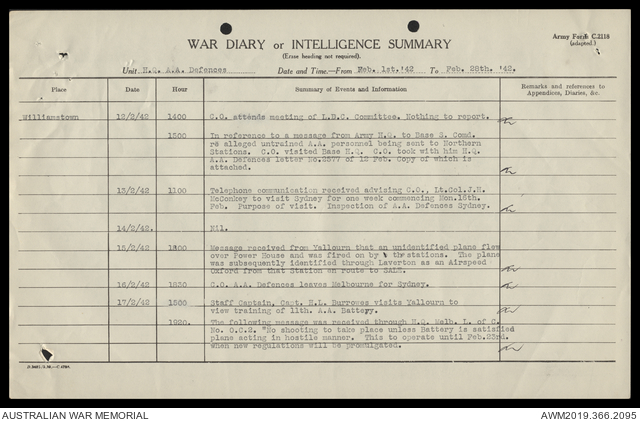 Army Form C.2118
(adapted.)
WAR DIARY or INTELLIGENCE SUMMARY
(Erase heading not required).
Unit H.Q. A.A. Defences Date and Time.—From Feb. 1st.'42 To Feb. 28th. '42.
Place Date Hour Summary of Events and Information Remarks and references to Appendices, Diaries, &c.
Williamstown 12/2/42 1400 C.O. attends meeting of L.B.C. Committee. Nothing to report.
1500 In reference to a message from Army H.Q. to Base S. Comd.
re alleged untrained A.A. personnel being sent to Northern
Stations. C.O. visited Base H.Q. C.O. took with him H.Q.
A.A. Defences letter No.2377 of 12 Feb. Copy of which is
attached.
13/2/42 1100 Telephone communication received advising C.O., Lt.Col.J.H.
McConkey to visit Sydney for one week commencing Mon.16th.
Feb. Purpose of visit. Inspection of A.A. Defences Sydney.
14/2/42. Nil.
15/2/42 1800 Message received from Yallourn that an unidentified plane flew
over Power House and was fired on by the stations. The plane
was subsequently identified through Laverton as an Airspeed
Oxford from that Station en route to SALE.
16/2/42 1830 C.O. A.A. Defences leaves Melbourne for Sydney.
17/2/42 Staff Captain, Capt. H.L. Burrowes visits Yallourn to
view training of 11th. A.A. Battery.
1920. The following message was received through H.Q. Melb. L. of C.
No. C.C.2. "No shooting to take place unless Battery is satisfied
plane acting in hostile manner. This to operate until Feb.23rd.
when new regulations will be promulgated.
AUSTRALIAN WAR MEMORIAL
AWM2019.366.2095